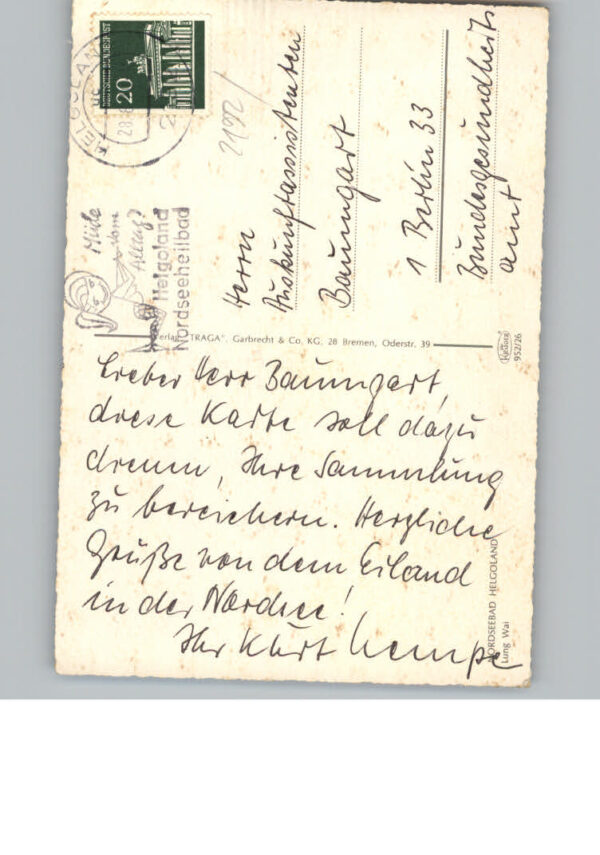 DEUTSCHE BUNDESPOST
20
HELGOLAND
28.
2192
Müde
vom
Alltag?
Helgoland
Nordseeheilbad
Herrn
Auskunftassistenten
Baumgart
1 Berlin 33
Bundesgesundheits
amt
Verlag "TRAGA", Garbrecht & Co. KG, 28 Bremen, Oderstr. 39
952/26
Lieber Herr Baumgart,
diese Karte soll dazu
dienen, Ihre Sammlung
zu bereichern. Herzliche
Grüße von dem Eiland
in der Nordsee!
Ihr Kurt
NORDSEEBAD HELGOLAND
Lung Wai